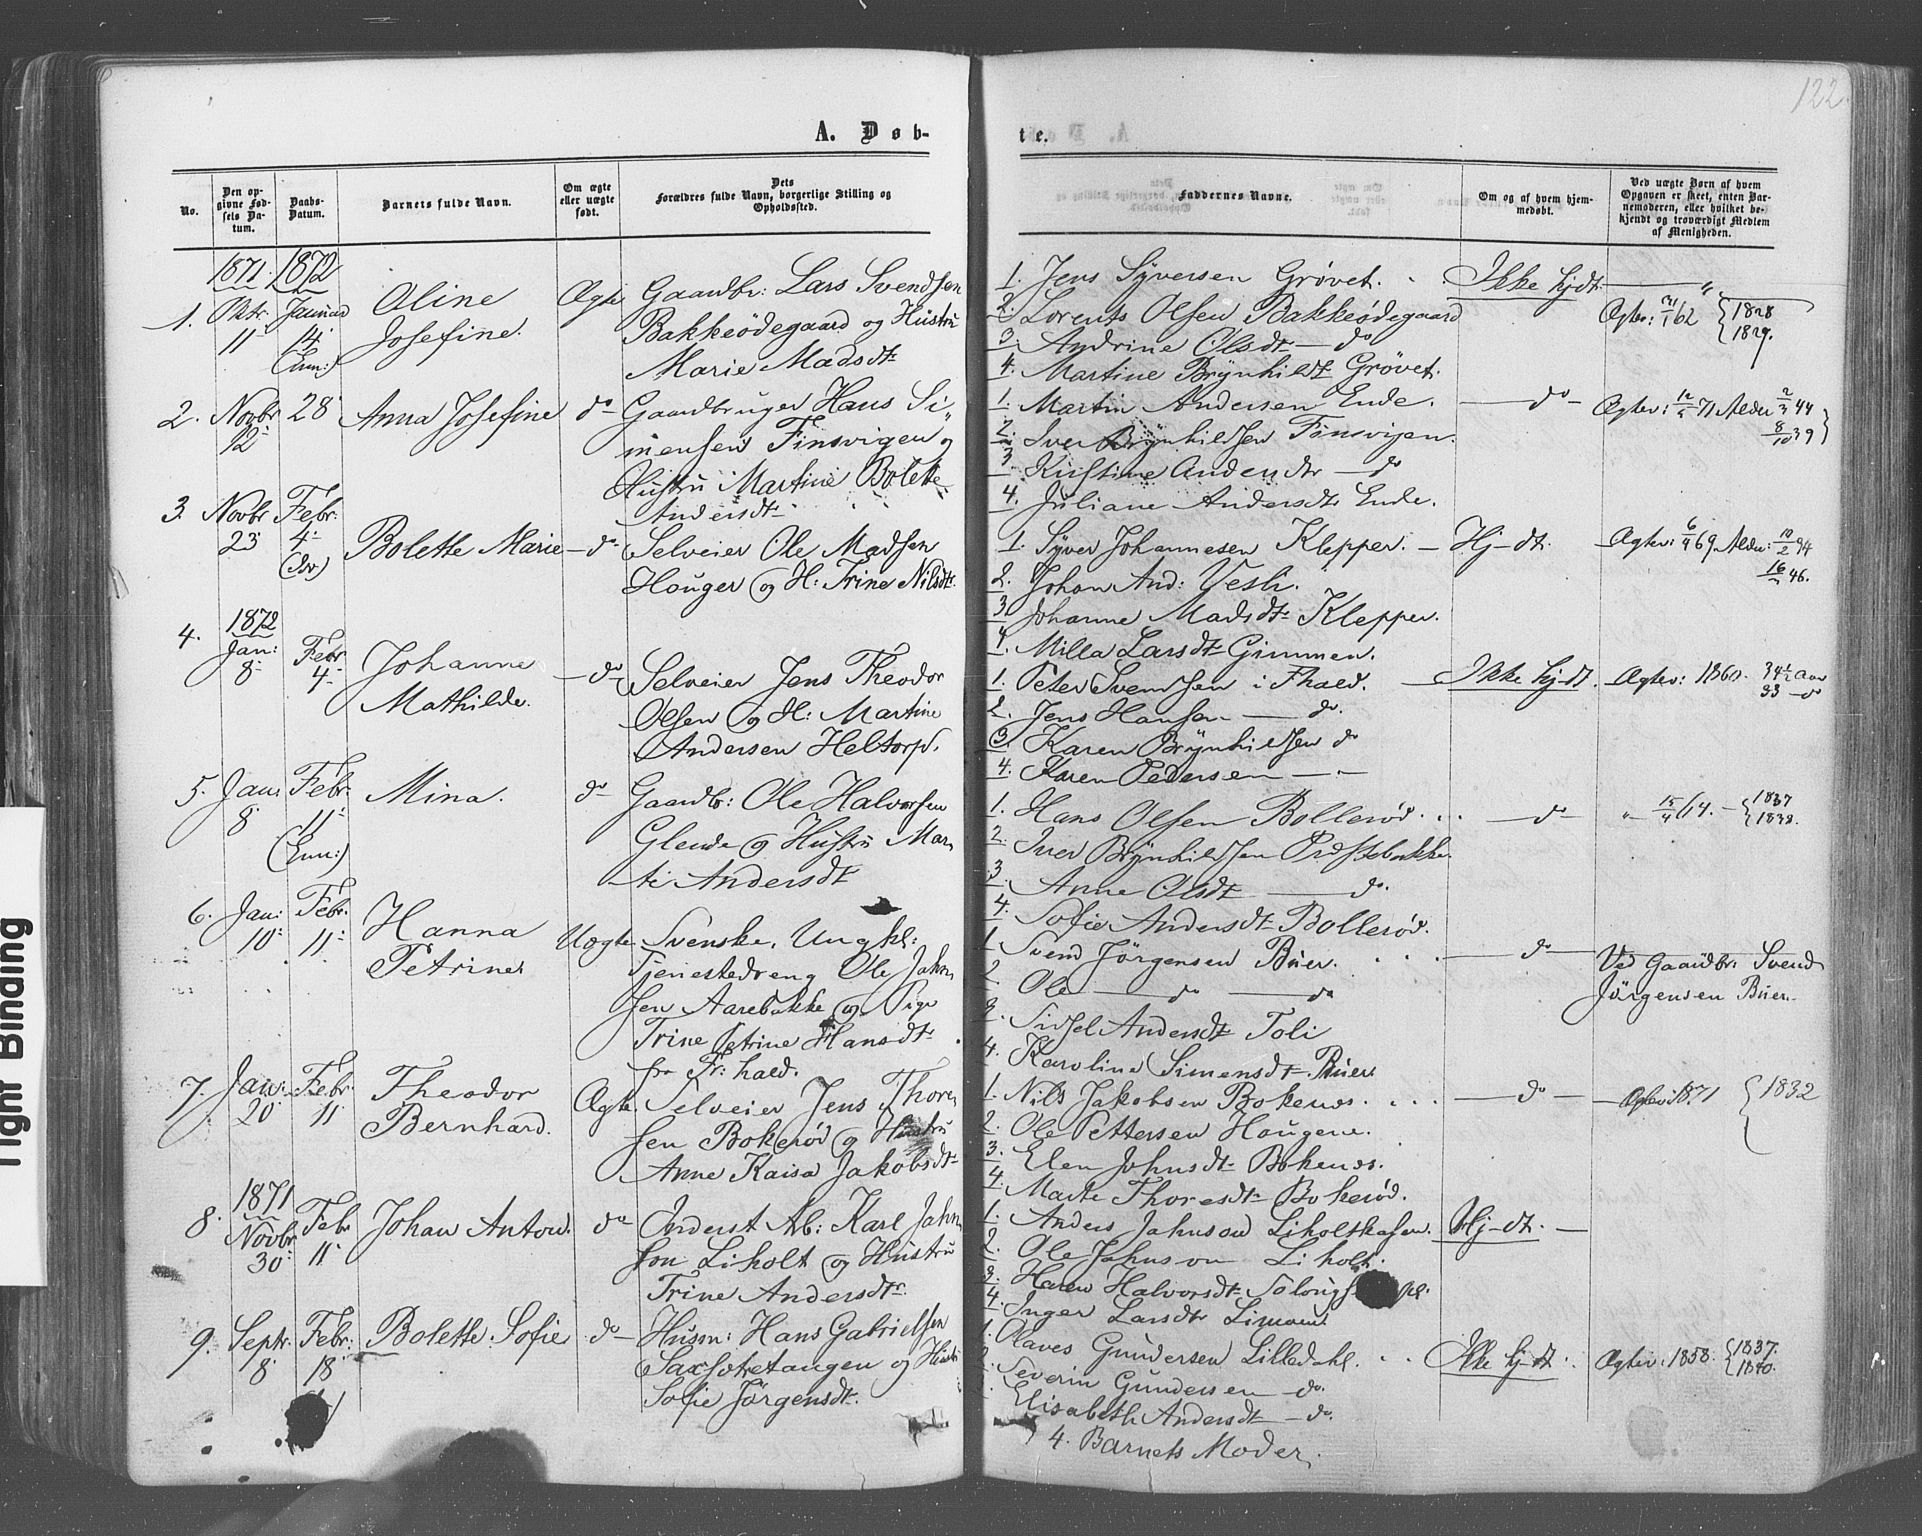 122.
A. Døb-
te.
No.
Den op-
givne Fød-
sels Da-
tum.
Daabs-
Datum.
Barnets fulde Navn.
Om ægte
eller uægte
født.
Dets
Forældres fulde Navn, borgerlige Stilling og
Opholdssted.
Faddernes Navne.
Om og af hvem hjem-
medøbt.
Ved uægte Børn af hvem
Opgaven er skeet, enten Bar-
nemoderen, eller hvilket be-
kjendt og troværdigt Medlem
af Menigheden.
1871. 1872
1. Oktr. Januar Oline Ægte Gaardbr: Lars Svendsen
11 14 Josefine. Bakkeødegaard og Hustru
(Enn:) Marie Madsdtr
1. Jens Syversen Grøvet. Ikke hjdt. "
2. Lorents Olsen Bakkeødegaard Ægtev: 62 {1828
3. Andrine Olsdtr — do 1829.
4. Martine Brynhildt Grøvet.
2. Novbr 28 Anna Josefine do Gaardbruger Hans Si-
12 mensen Finsvigen og
Hustru Martine Bolette
Andersdtr
1. Martin Andersen Ende. — do — Ægtev: 71 Alder 2/3 44
2. Iver Brynhildsen Finsvigen. 8/10 39
3. Kristine Andersdtr — do
4. Juliane Andersdtr Ende.
3. Novbr Febr: Bolette Marie — do Selveier Ole Madsen
23 4 Houger og H: Trine Nilsdtr.
1. Syver Johannesen Klepper. — Hj-dt. Ægtev: 69 Alder: 10/2 44
2. Johan And: Vestv. 46.
3. Johanne Madsdtr Klepper.
4. Milla Larsdtr Gimmen.
1872
4. Jan: Febr Johanne — do Selveier Jens Theodor
8 4 Mathilde. Olsen og H: Martine
Andersen Heltorp.
1. Peter Svendsen i Fhald. — Ikke hj-dt. Ægtev: 1860. 34½ Aar
2. Jens Hansen — do. 33 — do
3. Karen Brynhildsen do
4. Karen Pedersen — "
5. Jan: Febr. Mina. do Gaardbr: Ole Halvorsen
8 11 Glende og Hustru Mar-
(Enn:) te Andersdt
1. Hans Olsen Bollerød. — do — " 15/4 64. — {1837
2. Iver Brynhildsen Prestebakke. 1838.
3. Anne Olsdt — do.
4. Sofie Andersdt Bollerød.
6. Jan: Febr. Hanna Uægte. Svenske, Ungkl:
10 11 Petrine Tjenestedreng Ole Jahn-
sen Aarebakke og Pige
Trine Petrine Hansdt
fra Fr: hald.
1. Svend Jörgensen Buer. — do — Ved Gaardbr. Svend
2. Ole — do — do Jörgensen Buer.
3. Sidsel Andersdt Toli
4. Karoline Simensdt Buer.
7. Jan: Febr Theodor Ægte. Selveier Jens Thore-
20 11 Bernhard. sen Bokerød og Hustru
Anne Kaisa Jakobsdt
1. Nils Jakobsen Bokenes. — do — Ægtev: 1871 {1832
2. Ole Pettersen Hougene.
3. Elen Johnsdt Bokenes.
4. Marte Thoresdt Bokerød.
1871
8. Novbr Febr Johan Anton. do Inderst Arb: Karl Jahn-
30 11 son Liholt og Hustru
Trine Andersdtr.
1. Anders Jahnson Liholt Hj-dt. —
2. Ole Jahnson Liholt.
3. Karen Halvorsdt
4. Inger Larsdtr
9. Septr. Febr: Bolette Sofie do — Husm: Hans Gabrielsen
8 18 og Hustru
Sofie Jörgensdt.
Olaves Gundersen Lilledahl. Ikke hj-dt. Ægtev: 1858. {1837.
Severin Gundersen — do. 1840.
Elisabeth Andersdt — do.
4. Barnets Moder.
Tight Binding